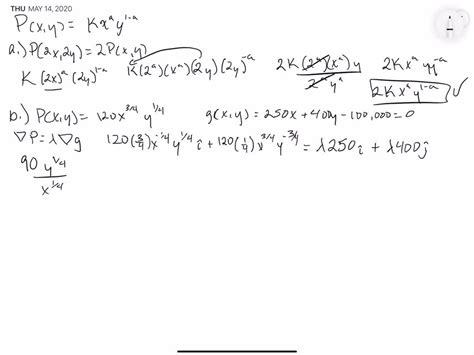 THU MAY 14, 2020
P(x,y) = Kxᵃy¹⁻ᵃ
a.) P(2x,2y) = 2P(x,y)
K(2x)ᵃ(2y)¹⁻ᵃ K(2ᵃ)(xᵃ)(2y)(2y)⁻ᵃ 2K(2ᵃ)(xᵃ)y / 2ᵃyᵃ 2Kxᵃyy⁻ᵃ
2Kxᵃy¹⁻ᵃ ✓
b.) P(x,y) = 120x³ᐟ⁴y¹ᐟ⁴ g(x,y) = 250x + 400y - 100,000 = 0
∇P = λ∇g 120(3/4)x⁻¹ᐟ⁴y¹ᐟ⁴i + 120(1/4)x³ᐟ⁴y⁻³ᐟ⁴j = λ250i + λ400j
90 y¹ᐟ⁴ / x¹ᐟ⁴